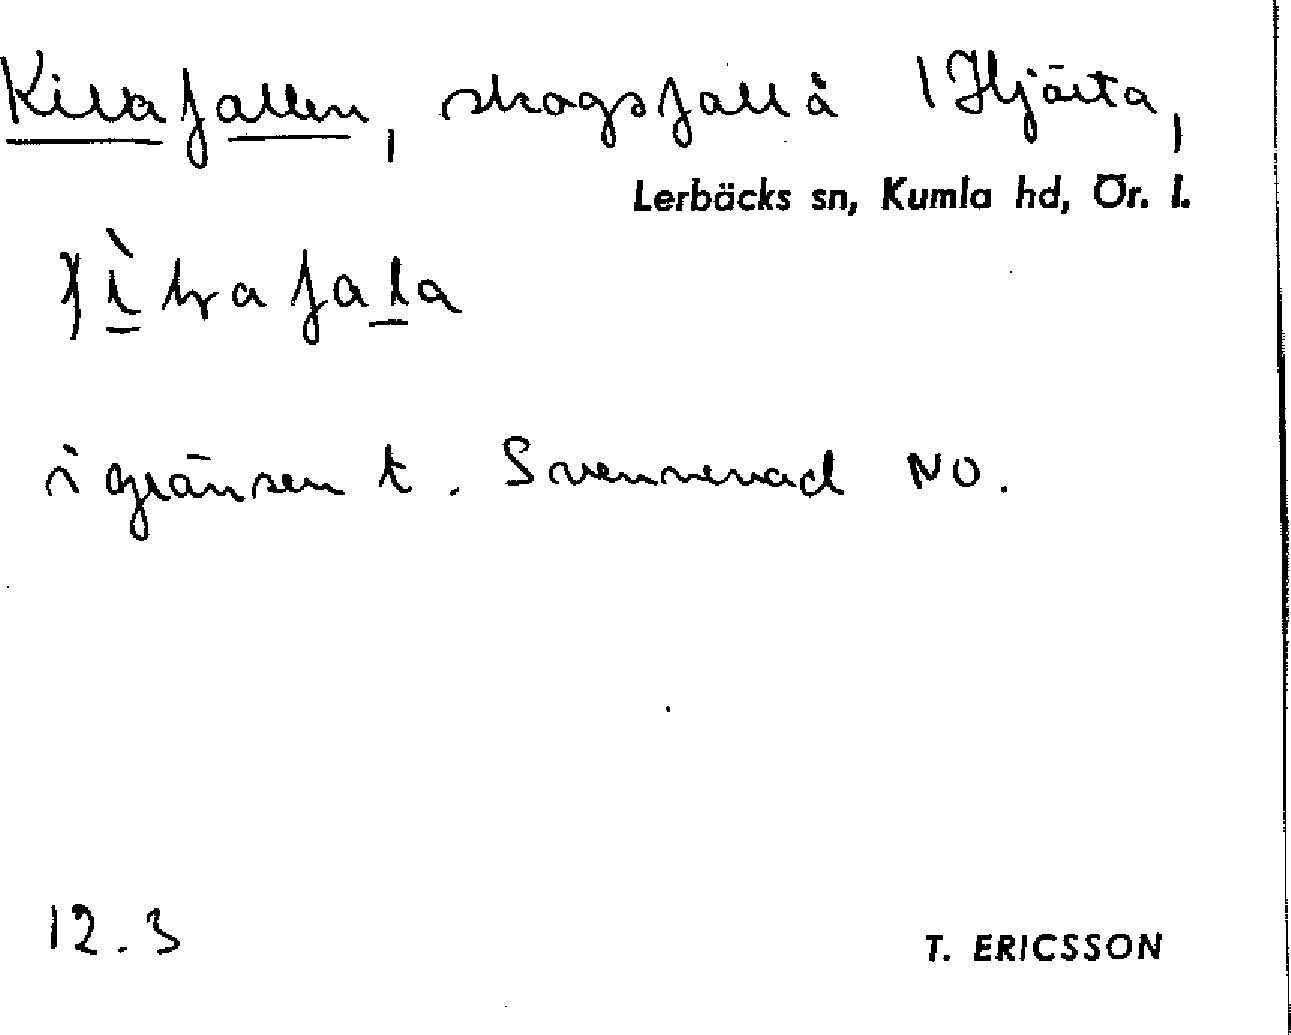 Killafallen, skogsfall å 1 Hjärta,
Lerbäcks sn, Kumla hd, Ör. l.
i gränsen t. Svennevad NO.
12.3
T. ERICSSON